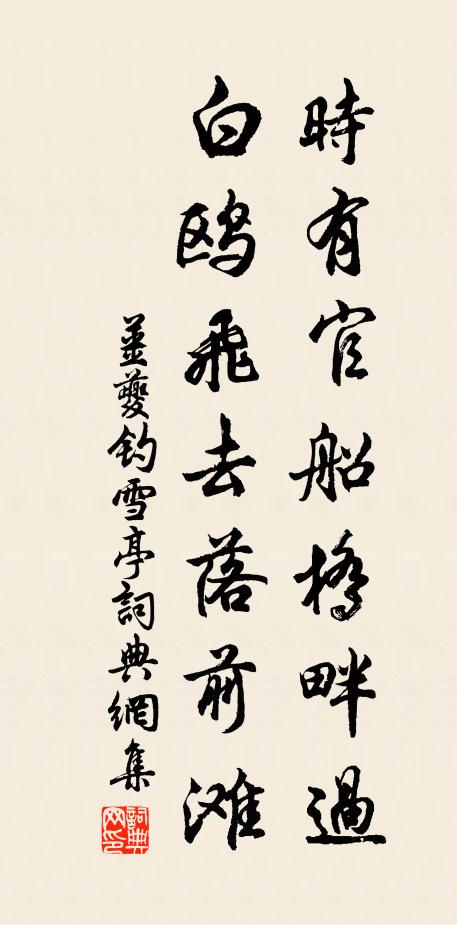 時有官船橋畔過
白鷗飛去落前灘
姜夔釣雪亭詞典網集
詞典
网印